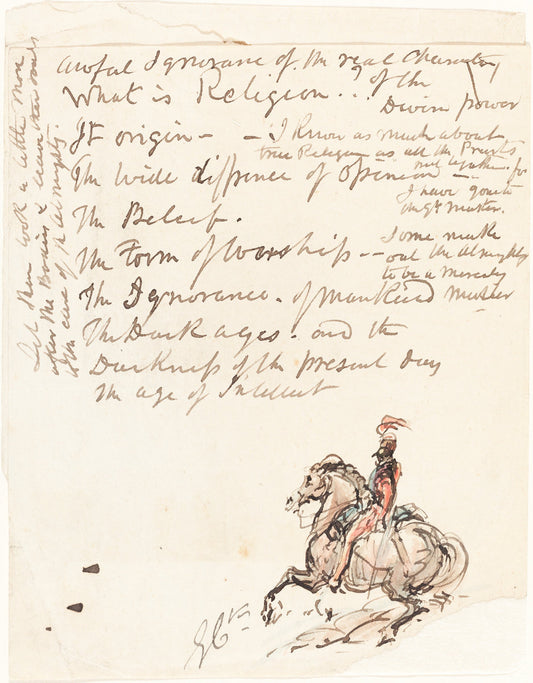 awful Ignorance of the real Character
of the
Divine power
What is Religion..?
It origin – – I know as much about
true Religion as all the Priests
put together for
I have gone to
the Gt Master.
The wide diffrence of Opinion –
The Belief.
The Form of Worship –
Some make
out the Almighty
to be a Merciless
Master
The Ignorance. of Mankind
The Dark ages. and the
Darkness of the present day
the age of Intellect
Let them work a little more
after the Brains & leave their souls
to the care of the Almighty.